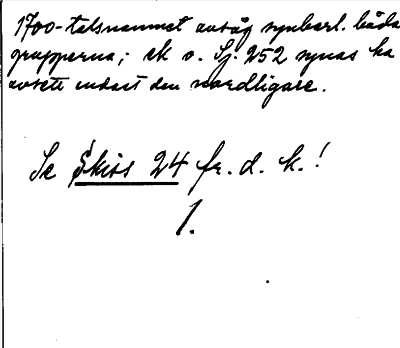 1700-talsnamnet avsåg synbarl. båda
grupperna; ek o. Sj. 252 synas ha
avsett endast den nordligare.
Se Skiss 24 fr. d. k.!
1.